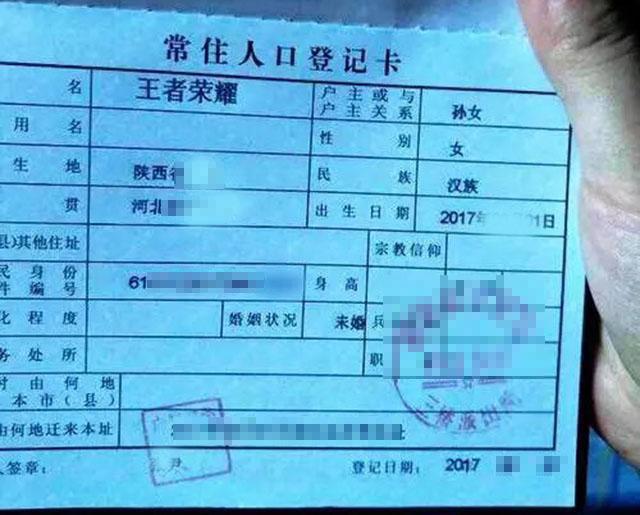 常住人口登记卡
名 王者荣耀 户主或与户主关系 孙女
用名 性别 女
生地 陕西 民族 汉族
贯 河北 出生日期 2017年 01日
县)其他住址 宗教信仰
民身份
件编号 61 身高
化程度 婚姻状况 未婚 兵
务处所 职
由何地
本市(县)
由何地迁来本址 址
人签章: 登记日期: 2017